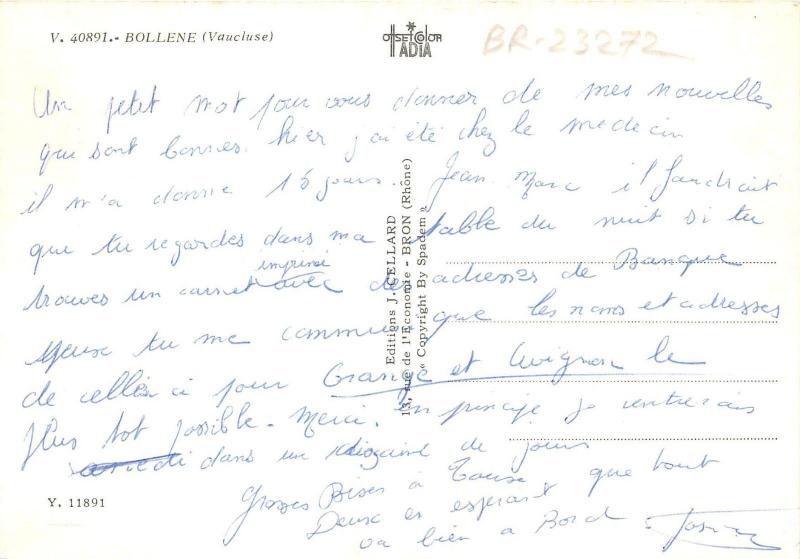 V. 40891.- BOLLENE (Vaucluse)
OFFSET COLOR
IADIA
BR-23272
Un petit mot pour vous donner de mes nouvelles
qui sont bonnes. hier j'ai été chez le medecin
il m'a donne 15 jours. Jean Marc il faudrait
que tu regardes dans ma table du nuit si tu
imprimé
trouves un carnet avec des adresses de Banque
peux tu me communique les noms et adresses
de celles ci pour Orange et Avignon le
plus tot possible - Merci. en principe je rentrerais
samedi dans un dizaine de jours
Grosses Bises à Tous
Deux en esperant que tout
va bien a Bord
Editions J. CELLARD
13, rue de l'Economie - BRON (Rhône)
« Copyright By Spadem »
Y. 11891